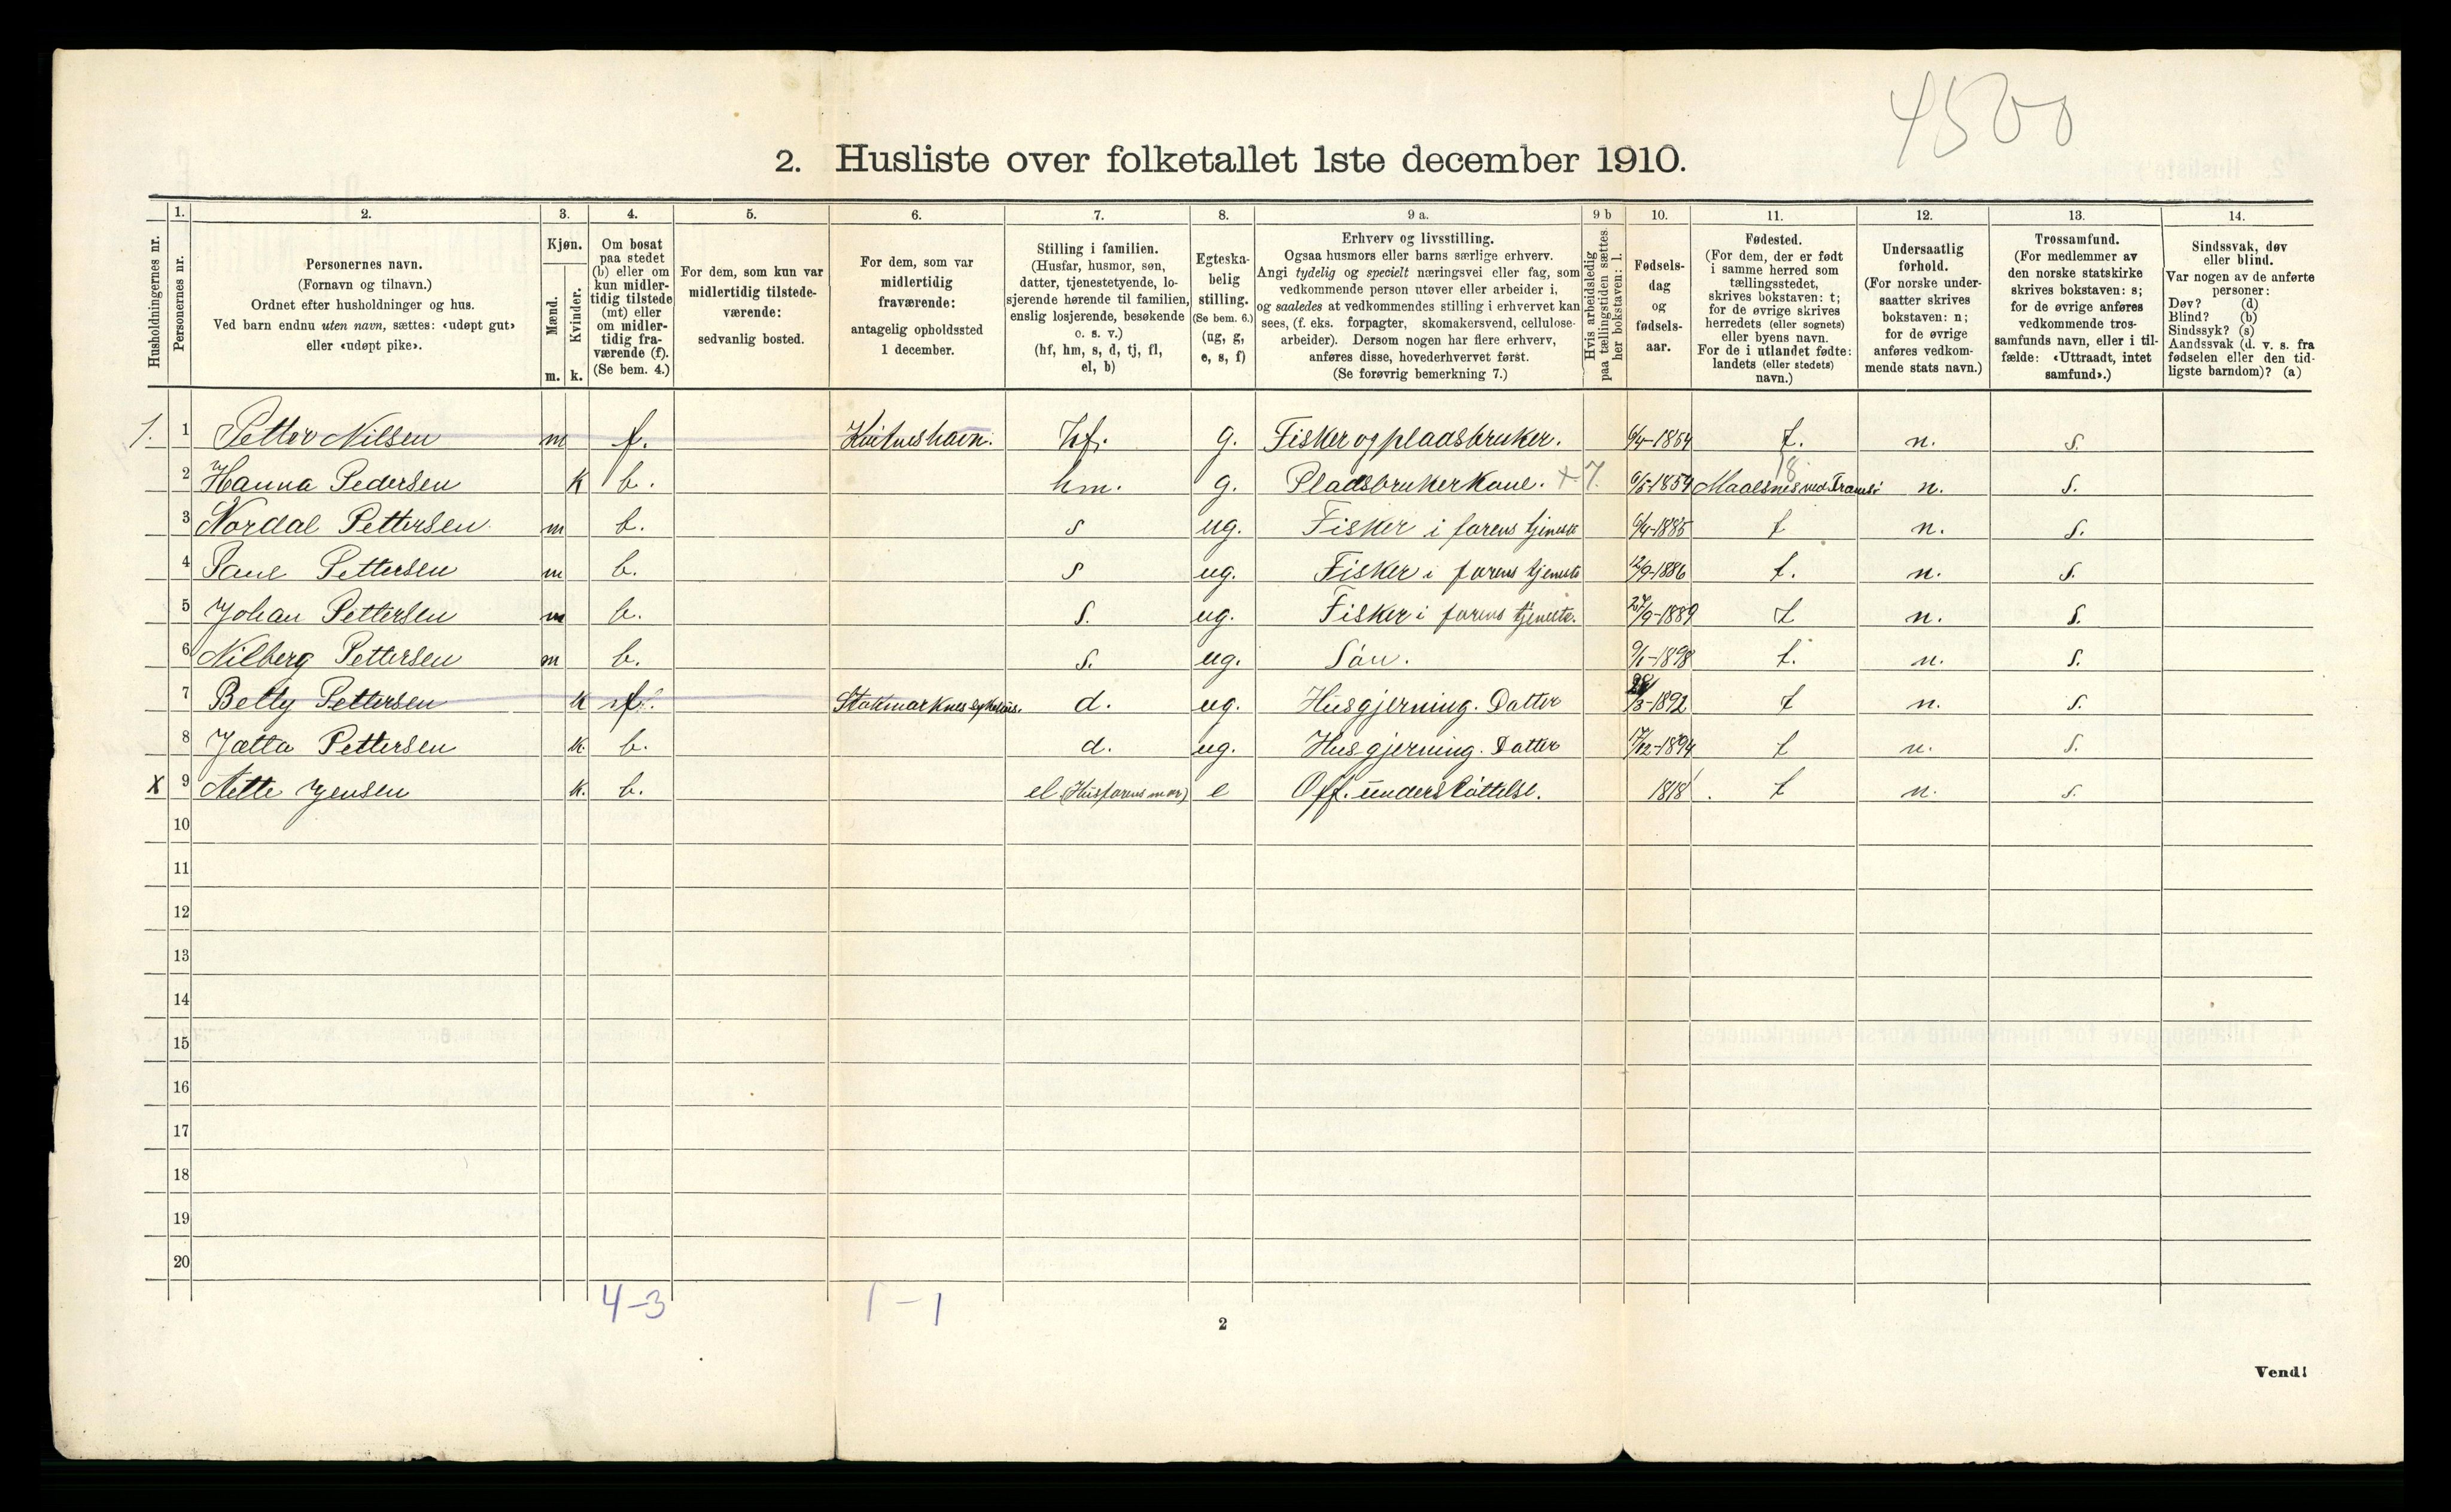 4500
2. Husliste over folketallet 1ste december 1910.
Husholdningernes nr.
1. Personernes nr.
2. Personernes navn. (Fornavn og tilnavn.) Ordnet efter husholdninger og hus. Ved barn endnu uten navn, sættes: «udøpt gut» eller «udøpt pike».
3. Kjøn. Mænd. m. Kvinder. k.
4. Om bosat paa stedet (b) eller om kun midlertidig tilstede (mt) eller om midlertidig fraværende (f). (Se bem. 4.)
5. For dem, som kun var midlertidig tilstedeværende: sedvanlig bosted.
6. For dem, som var midlertidig fraværende: antagelig opholdssted 1 december.
7. Stilling i familien. (Husfar, husmor, søn, datter, tjenestetyende, losjerende hørende til familien, enslig losjerende, besøkende o. s. v.) (hf, hm, s, d, tj, fl, el, b)
8. Egteskabelig stilling. (Se bem. 6.) (ug, g, e, s, f)
9 a. Erhverv og livsstilling. Ogsaa husmors eller barns særlige erhverv. Angi tydelig og specielt næringsvei eller fag, som vedkommende person utøver eller arbeider i, og saaledes at vedkommendes stilling i erhvervet kan sees, (f. eks. forpagter, skomakersvend, cellulosearbeider). Dersom nogen har flere erhverv, anføres disse, hovederhvervet først. (Se forøvrig bemerkning 7.)
9 b Hvis arbeidsledig paa tællingstiden sættes her bokstaven: l.
10. Fødselsdag og fødselsaar.
11. Fødested. (For dem, der er født i samme herred som tællingsstedet, skrives bokstaven: t; for de øvrige skrives herredets (eller sognets) eller byens navn. For de i utlandet fødte: landets (eller stedets) navn.)
12. Undersaatlig forhold. (For norske undersaatter skrives bokstaven: n; for de øvrige anføres vedkommende stats navn.)
13. Trossamfund. (For medlemmer av den norske statskirke skrives bokstaven: s; for de øvrige anføres vedkommende trossamfunds navn, eller i tilfælde: «Uttraadt, intet samfund».)
14. Sindssvak, døv eller blind. Var nogen av de anførte personer: Døv? (d) Blind? (b) Sindssyk? (s) Aandssvak (d. v. s. fra fødselen eller den tidligste barndom)? (a)
1. 1 Petter Nilsen m f. hf. g. Fisker og pladsbruker. 6/4-1854 t. n. s.
2 Hanna Pedersen k b. hm. g. Pladsbrukerkone. + 7. 6/5-1854 Maalsnes ved Tromsö 18 n. s.
3 Nordal Pettersen m b. s ug. Fisker i farens tjeneste 6/4-1885 t n. s.
4 Paul Pettersen m b. s ug. Fisker i farens tjeneste 12/9-1886 t. n. s.
5 Johan Pettersen m b. s. ug. Fisker i farens tjeneste. 27/9-1889 t n. s.
6 Nilberg Pettersen m b. s. ug. Sön. 9/1-1898 t. n. s.
7 Betty Pettersen k f. Stokmarknes sykehus. d. ug. Husgjerning. Datter /3-1892 t n. s.
8 Jætta Pettersen k. b. d. ug. Husgjerning. Datter 17/12-1894 t n. s.
x 9 Nette Jensen k. b. el (Husfarens mor) e Off. understöttelse. 1818 t n. s.
10
11
12
13
14
15
16
17
18
19
20
4-3 1-1
2
Vend!